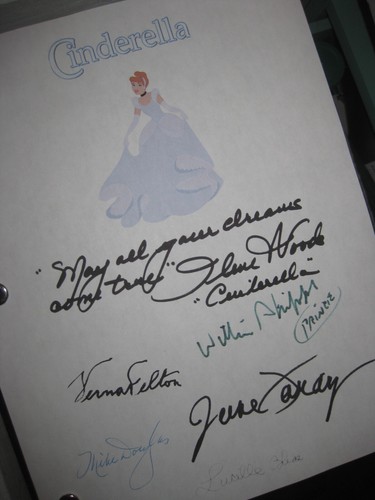 Cinderella
"May all your dreams
come true" Ilene Woods
"Cinderella"
William Phipps
PRINCE
Verna Felton
Mike Douglas
June Foray
Lucille Bliss